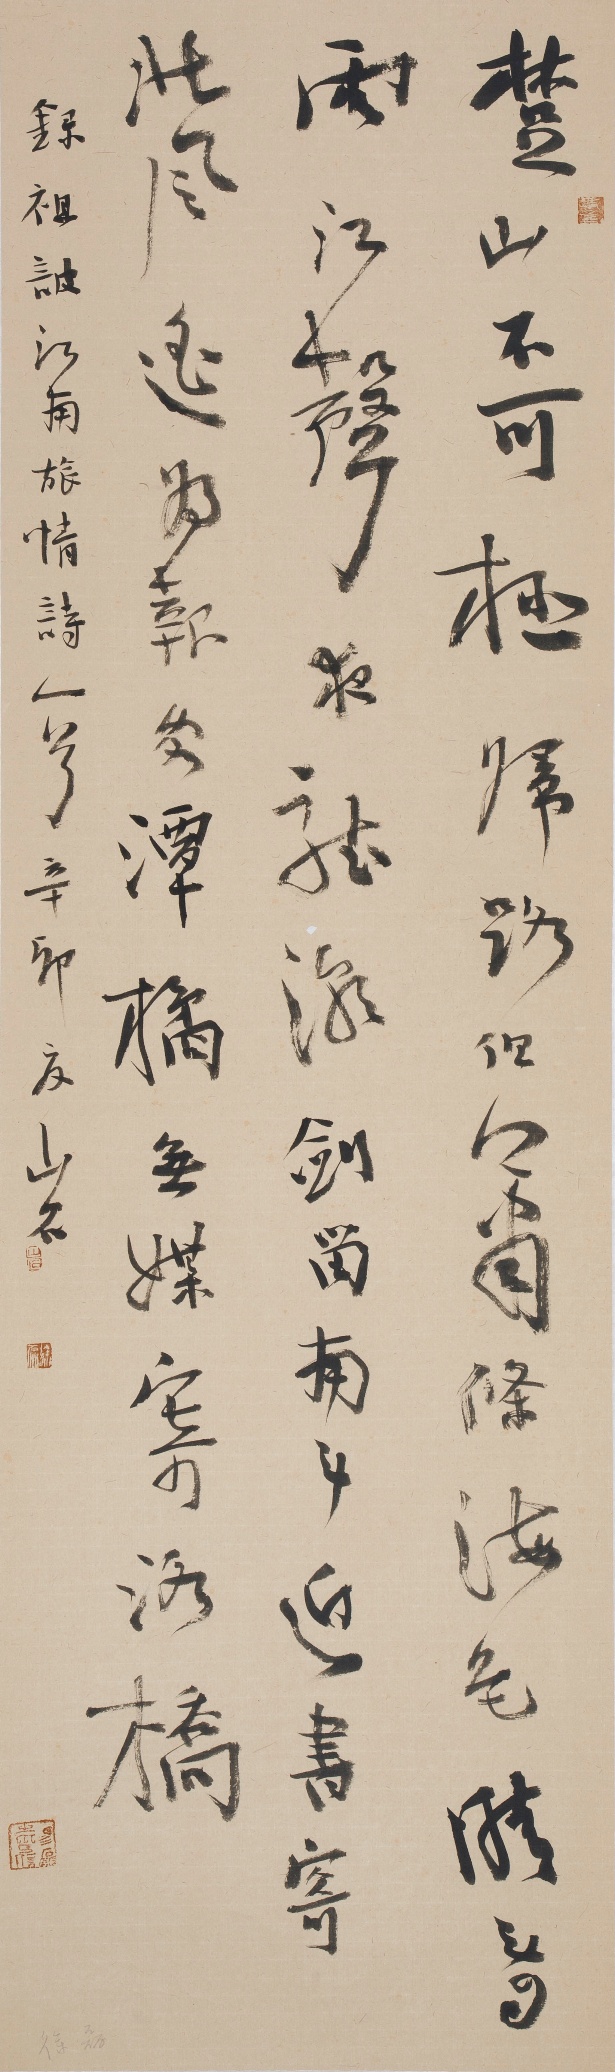 楚山不可極歸路但蕭條海色晴看
雨江聲夜聽潮劍留南斗近書寄
北風遙為報空潭橘無媒寄洛橋
錄祖詖江南旅情詩一首辛卯夏山石